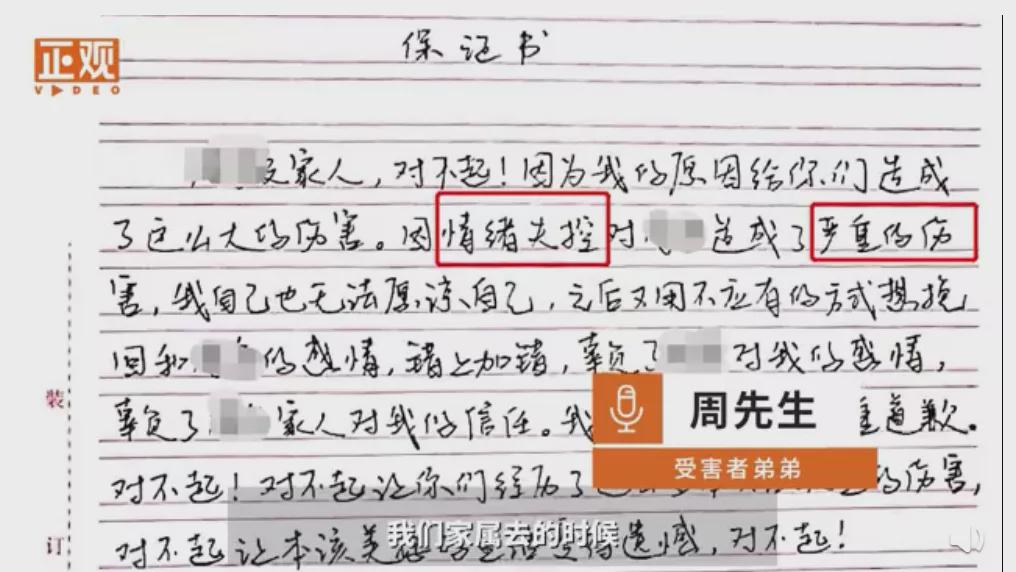 正观
VIDEO
保证书
及家人，对不起！因为我的原因给你们造成
了这么大的伤害。因情绪失控对 造成了严重的伤
害，我自己也无法原谅自己，之后又用不应有的方式想挽
回和 的感情，错上加错，辜负了 对我的感情，
辜负了 家人对我的信任。我 道歉。
对不起！对不起让你们经历了 的伤害，
对不起让本该美 遗憾，对不起！
周先生
受害者弟弟
我们家属去的时候
装
订